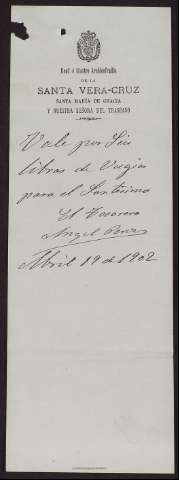 Real é Ilustre Archicofradía
DE LA
SANTA VERA-CRUZ
SANTA MARÍA DE GRACIA
Y NUESTRA SEÑORA DEL TRASPASO
Vale por Seis
libras de Vugias
para el Santisimo
El Tesorero
Angel Perez
Abril 19 de 1902